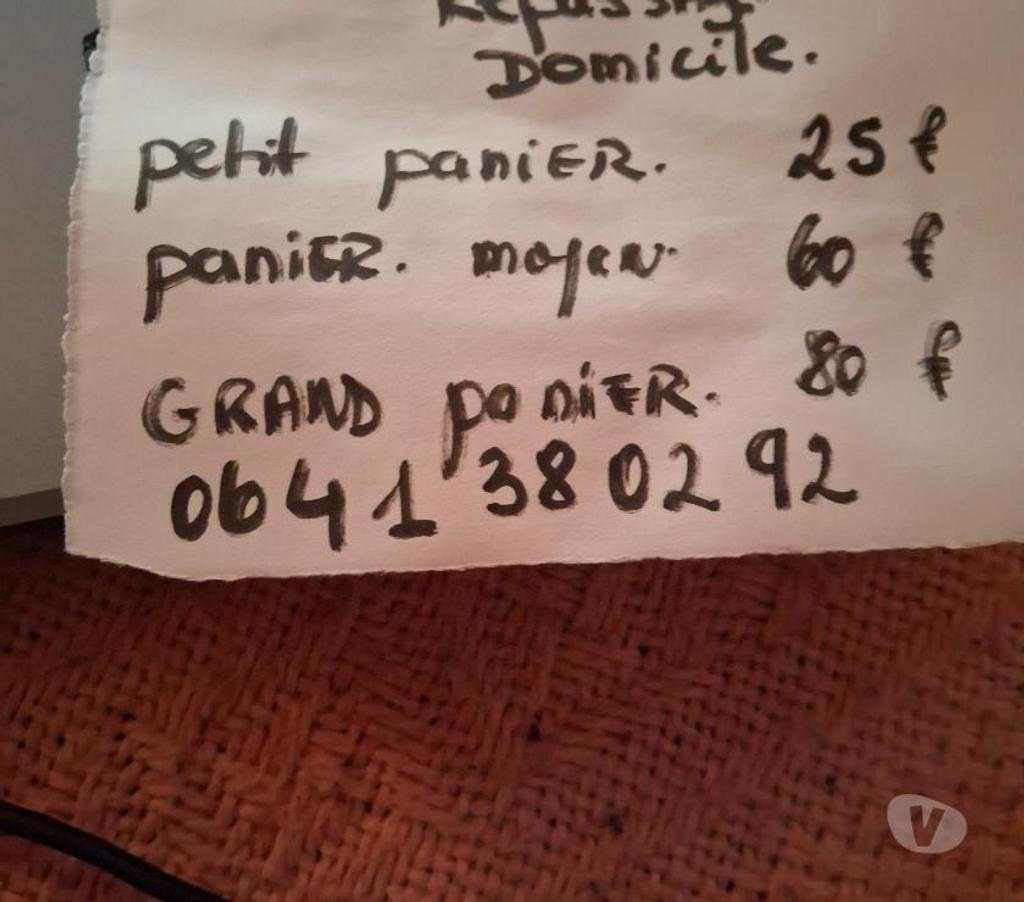 Repassing
Domicile.
petit panier. 25 €
panier. moyen. 60 €
GRAND panier. 80 €
0641 380292
V